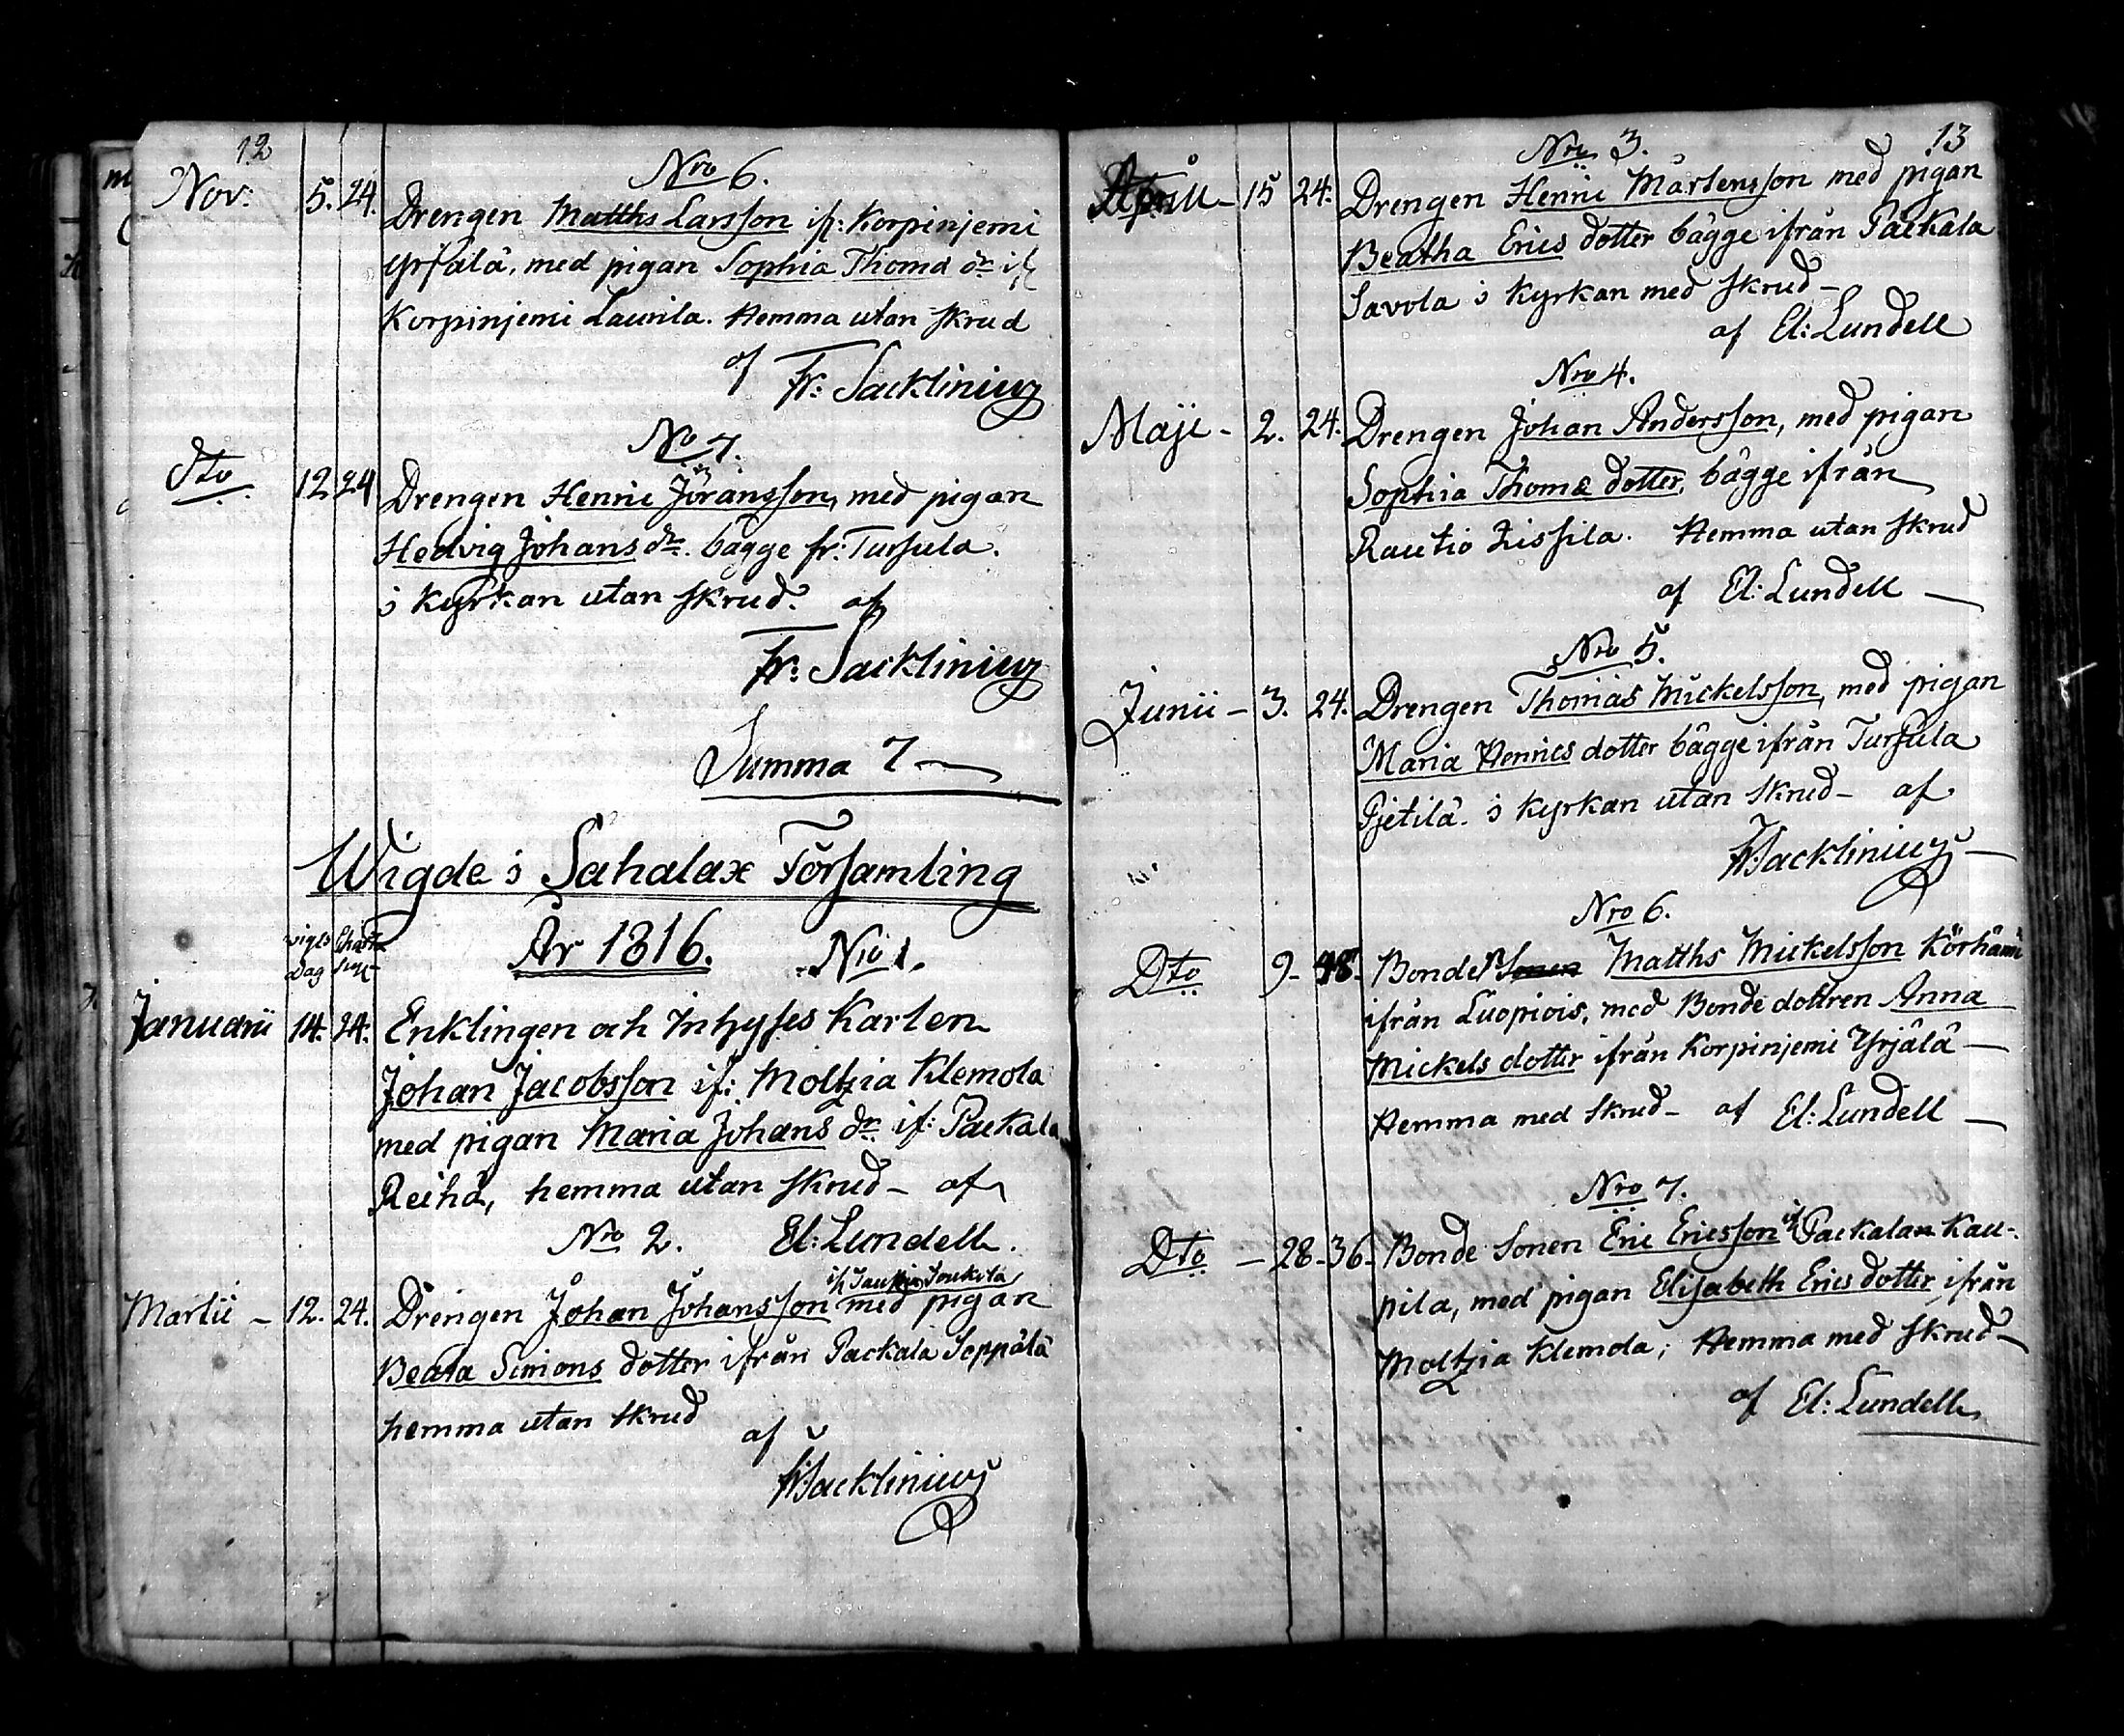 12
Nro 6.
Nov: 5. 24. Drengen Matths Larsson if: Korpinjemi
Yrjälä, med pigan Sophia Thomæ dr if
Korpinjemi Laurila. Hemma utan skrud
af Fr: Sacklinius
No 7.
Dto 12 24 Drengen Henric Jöransson, med pigan
Hedvig Johans dr. bägge fr: Tursula.
i kyrkan utan skrud. af
Fr: Sacklinius
Summa 7
Wigde i Sahalax Församling
År 1816. Nro 1.
vigs
Dag
Januarii 14. 24. Enklingen och Inhyses Karlen
Johan Jacobsson if: Moltzia Klemola
med pigan Maria Johans dr. if: Packala
Reihä, hemma utan skrud - af
Nro 2. El: Lundell.
if Joukola
Martii - 12. 24. Drengen Johan Johansson med pigan
Beata Simons dotter ifrån Packala Seppälä
hemma utan skrud
af
FrSacklinius
13
Nro 3.
Aprill - 15 24. Drengen Henric Mårtensson med pigan
Beatha Erics dotter bägge ifrån Packala
Savola i Kyrkan med skrud -
af El: Lundell
Nro 4.
Maji - 2. 24. Drengen Johan Andersson, med pigan
Sophia Thomæ dotter, bägge ifrån
Rautio Zissila. Hemma utan skrud
af El: Lundell
Nro 5.
Junii - 3. 24. Drengen Thomas Mickelsson, med pigan
Maria Henrics dotter bägge ifrån Tursula
Pjetilä. i kyrkan utan skrud - af
FrSacklinius
Nro 6.
Dto 9 - 48. Bonden Sonen Matths Mickelsson Körhämi
ifrån Luopiois, med Bonde dottren Anna
Mickels dotter ifrån Korpinjemi Yrjälä
Hemma med skrud - af El: Lundell
Nro 7.
Dto - 28 - 36 - Bonde Sonen Eric Ericsson if Packala Kau-
pila, med pigan Elisabeth Erics dotter ifrån
Moltzia Klemola; Hemma med skrud -
af El: Lundell